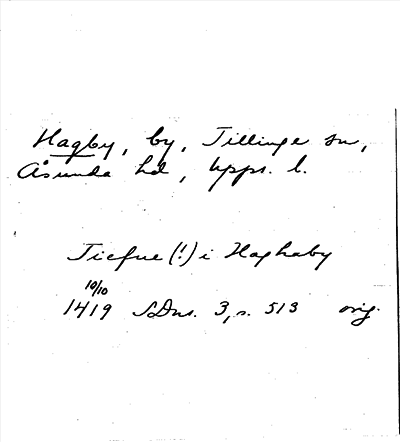 Hagby, by, Tillinge sn,
Åsunda hd, Upps. l.
Tiefue (!) i Haghaby
10/10
1419 SDns. 3, s. 513 orig.